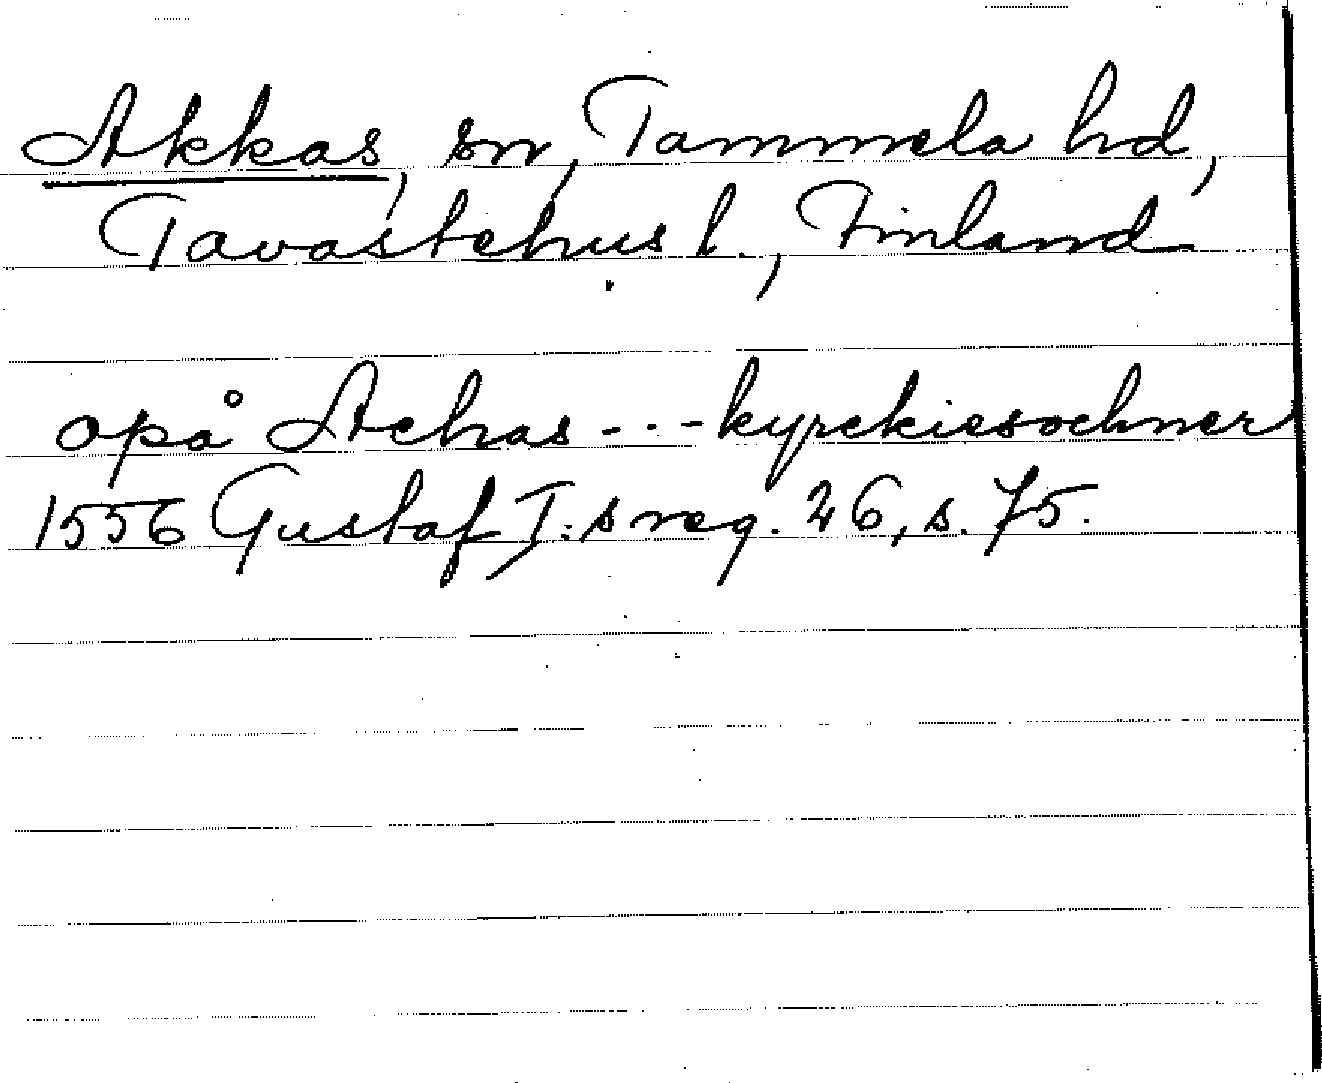 Akkas, sn, Tammela hd,
Tavastehus l., Finland
opå Achas - - - kyrckiesochner
1556 Gustaf I:s reg. 26, s. 75.